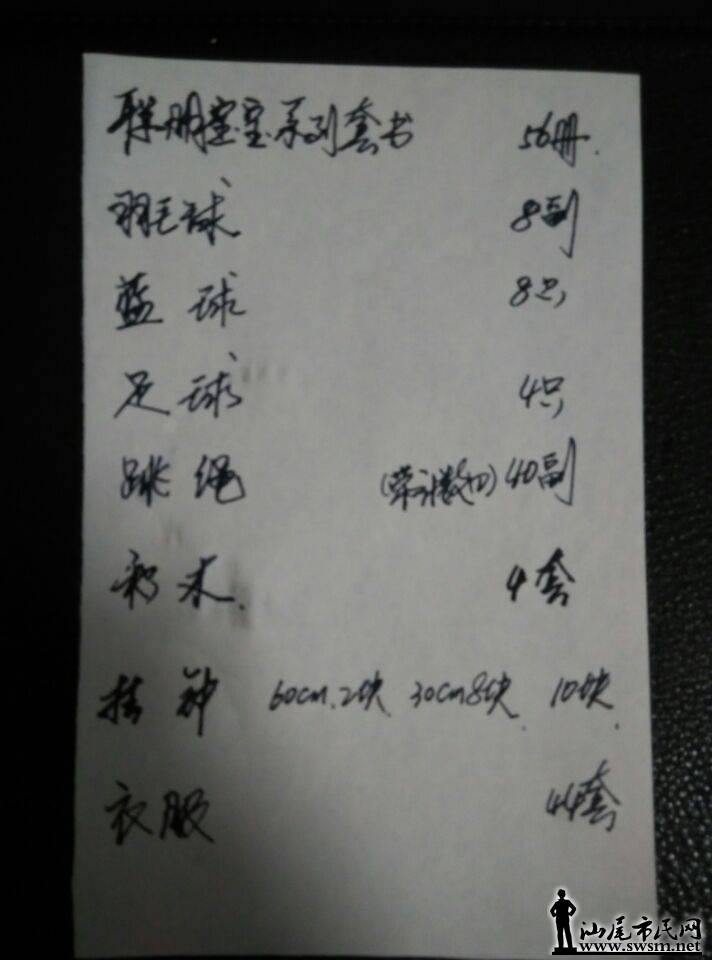 聪明宝宝系列套书 56册.
羽毛球 8副
蓝球 8只
足球 4只
跳绳 40副
积木. 4套
挂钟 60cm.2块 30cm8块. 10块.
衣服 44套
汕尾市民网
www.swsm.net